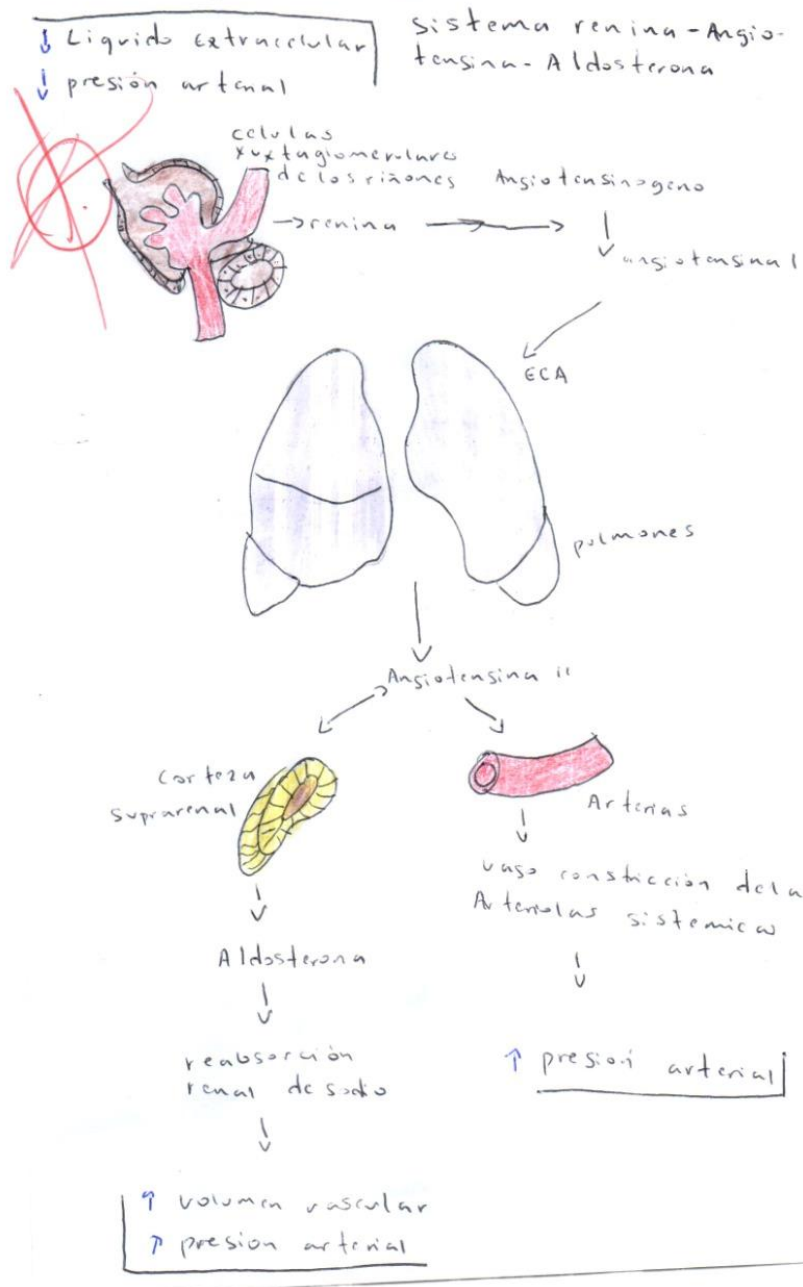 ↓ Liquido Extracelular
↓ presión arterial
Sistema renina - Angio-
tensina - Aldosterona
celulas
xuxtaglomerulares
de los riñones
→ renina
Angiotensinogeno
angiotensina I
ECA
pulmones
Angiotensina II
Corteza
suprarenal
Aldosterona
reabsorción
renal de sodio
↑ volumen vascular
↑ presion arterial
Arterias
vaso constricción de la
Arteriolas sistemicas
↑ presion arterial